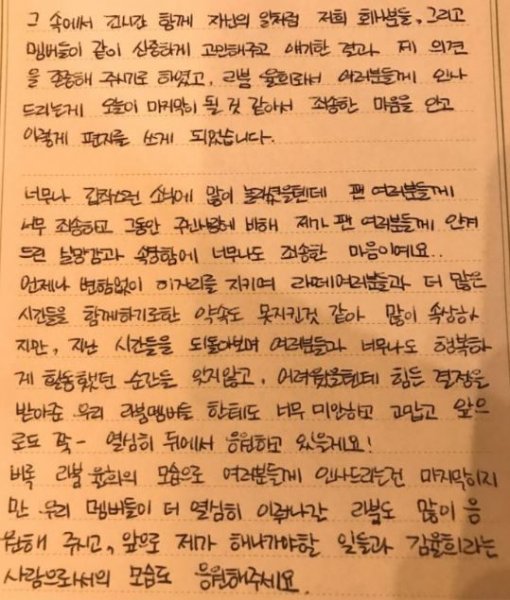 그 속에서 긴시간 함께 자신의 일처럼 저희 회사분들, 그리고
멤버들이 같이 신중하게 고민해주고 얘기한 결과 제 의견
을 존중해 주시기로 하였고, 라붐 율희로서 여러분들께 인사
드리는게 오늘이 마지막이 될 것 같아서 죄송한 마음을 안고
이렇게 편지를 쓰게 되었습니다.
너무나 갑작스런 소식에 많이 놀라셨을텐데 팬 여러분들께
너무 죄송하고 그동안 주신사랑에 비해 제가 팬 여러분들께 안겨
드린 실망감과 속상함에 너무나도 죄송한 마음이에요..
언제나 변함없이 이자리를 지키며 라떼여러분들과 더 많은
시간들을 함께하기로한 약속도 못지킨것 같아 많이 속상하
지만, 지난 시간들을 되돌아보며 여러분들과 너무나도 행복하
게 활동했던 순간들을 잊지않고, 어려웠을텐데 힘든 결정을
받아준 우리 라붐멤버들 한테도 너무 미안하고 고맙고 앞으
로도 쭉- 열심히 뒤에서 응원하고 있을게요!
비록 라붐 율희의 모습으로 여러분들께 인사드리는건 마지막이지
만 우리 멤버들이 더 열심히 이뤄나갈 라붐도 많이 응
원해 주시고, 앞으로 제가 해나가야할 일들과 김율희라는
사람으로서의 모습도 응원해주세요.